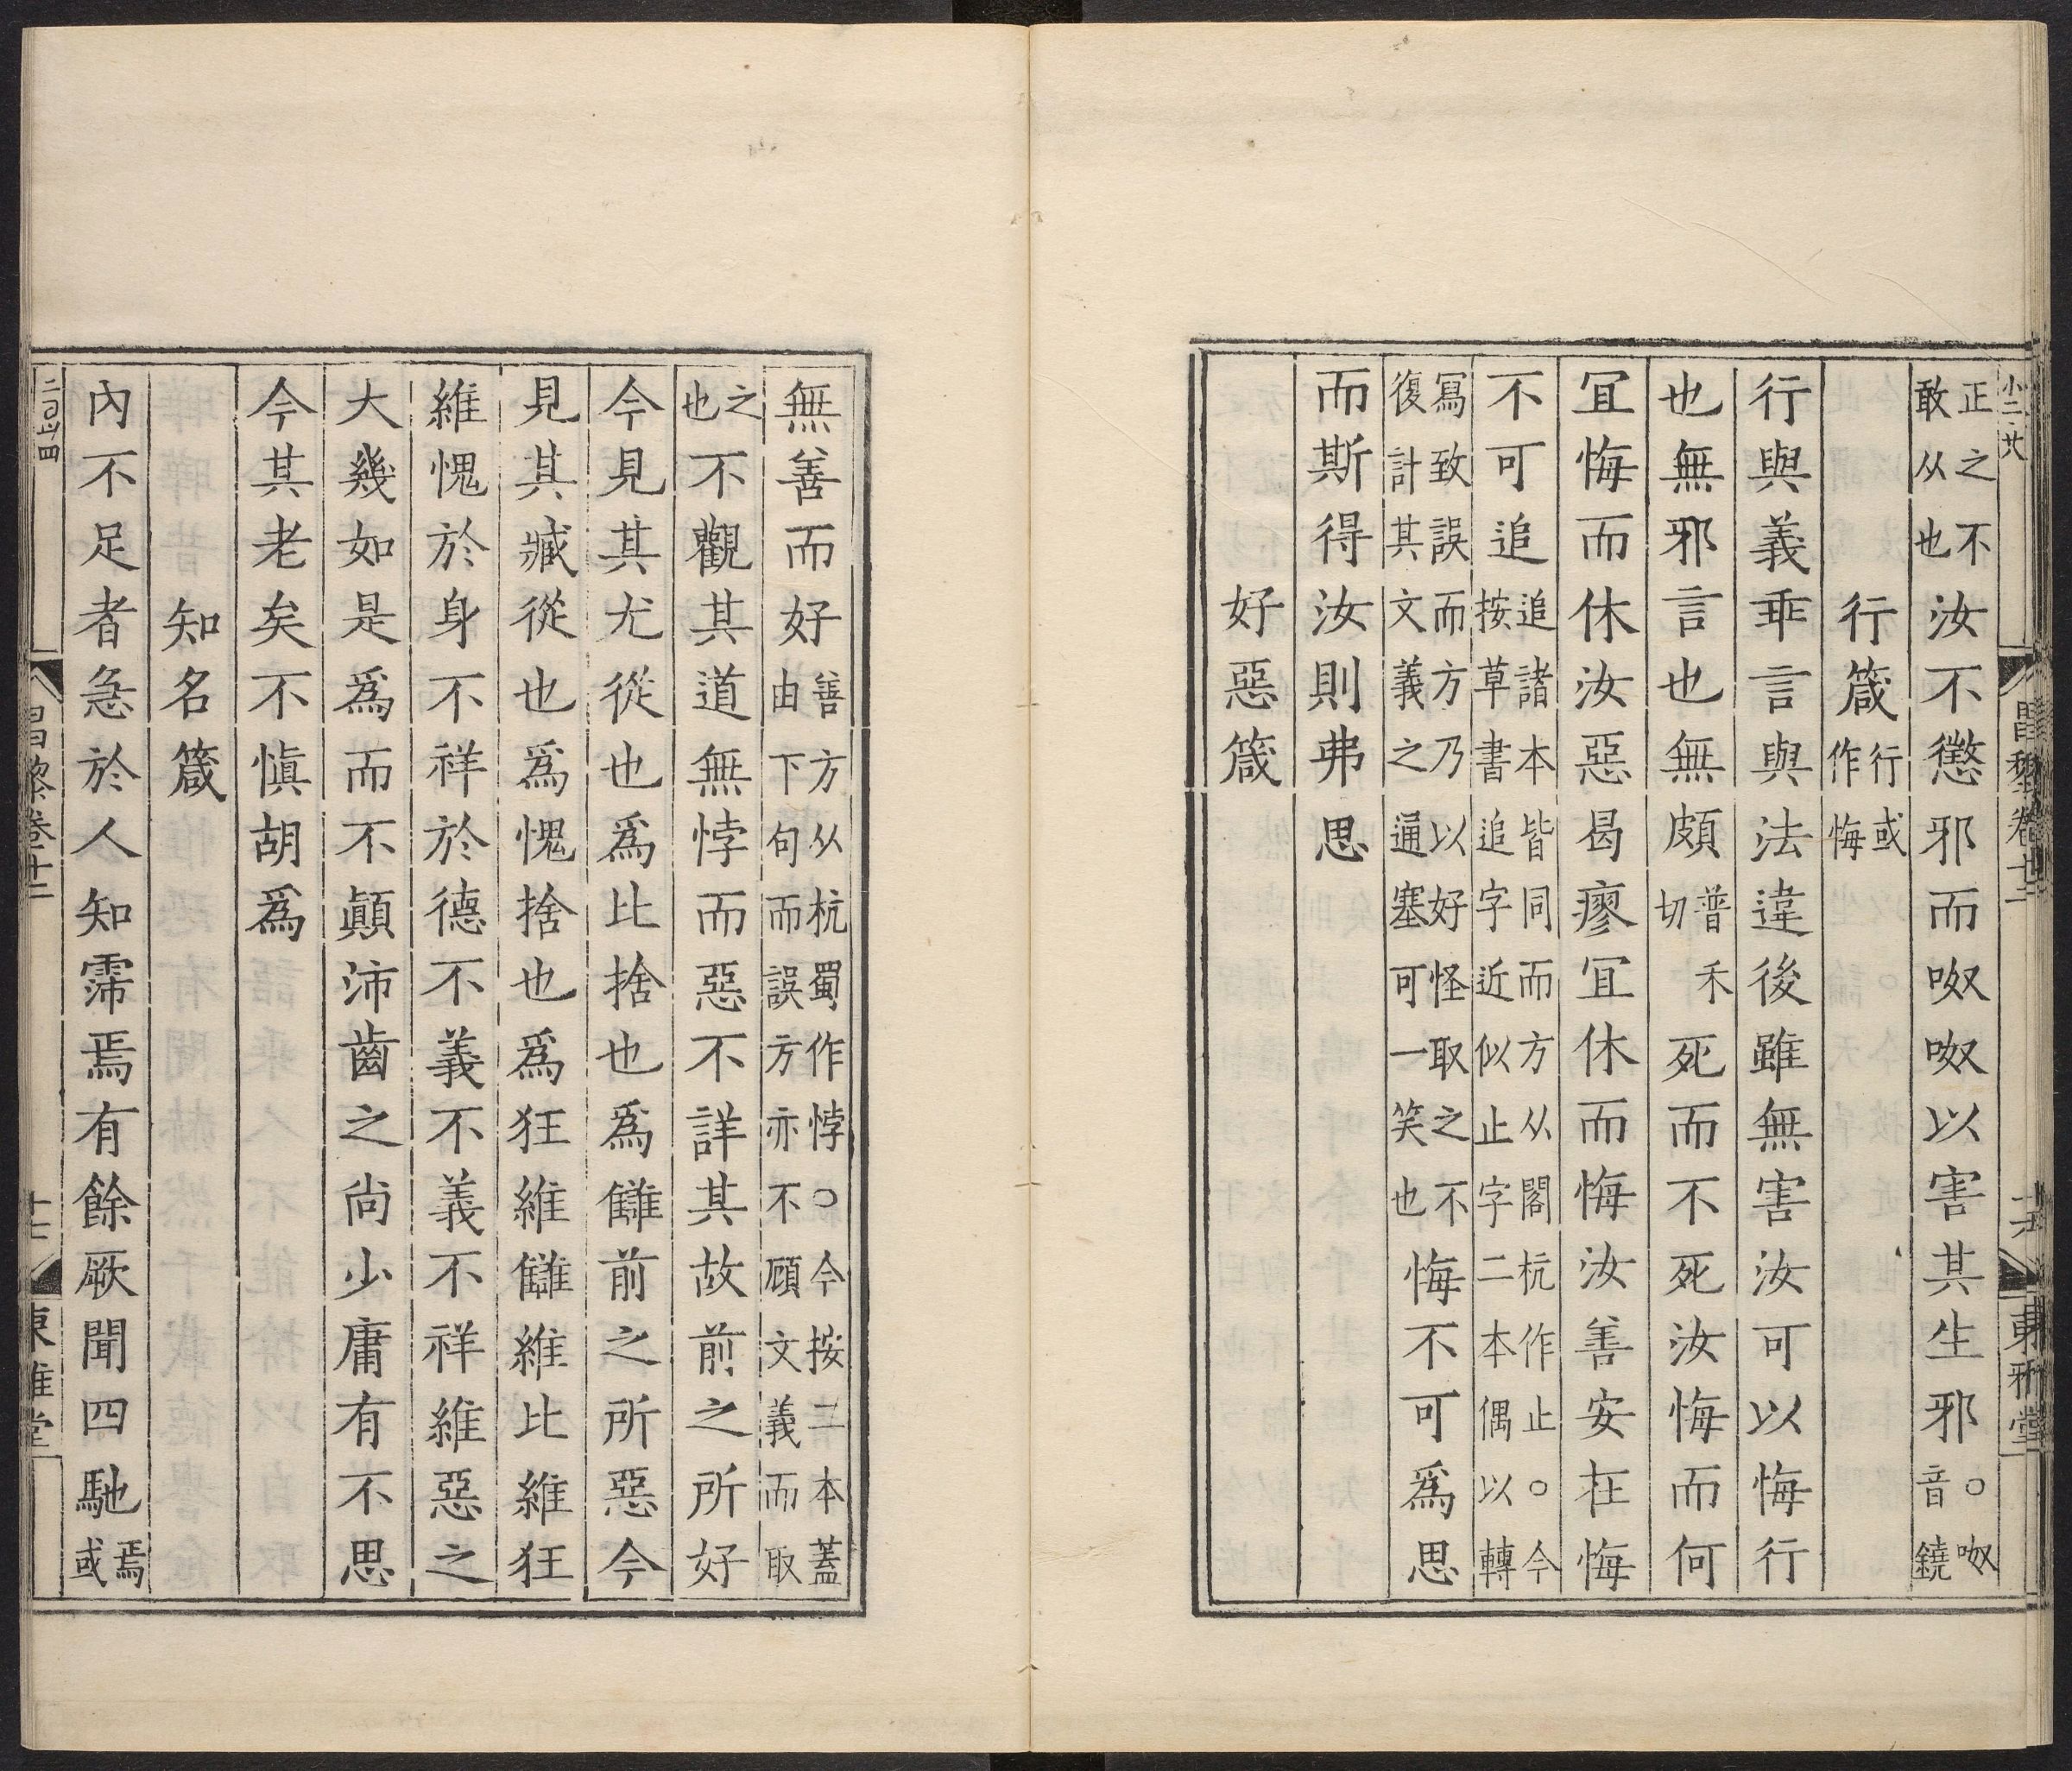 正之不敢从也汝不懲邪而呶呶以害其生邪○呶音鐃
行箴行或作悔
行與義乖言與法違後雖無害汝可以悔行
也無邪言也無頗普禾切死而不死汝悔而何
冝悔而休汝惡曷瘳冝休而悔汝善安在悔
不可追追諸本皆同而方从閣杭作止○今按草書追字近似止字二本偶以轉
寫致誤而方乃以好怪取之不復計其文義之通塞可一笑也悔不可為思
而斯得汝則弗思
好惡箴
無善而好善方从杭蜀作悖○今按二本蓋由下句而誤方亦不顧文義而取
之也不觀其道無悖而惡不詳其故前之所好
今見其尤從也為比捨也為讎前之所惡今
見其臧從也為愧捨也為狂維讎維比維狂
維愧於身不祥於德不義不義不祥維惡之
大幾如是為而不顛沛齒之尚少庸有不思
今其老矣不慎胡為
知名箴
內不足者急於人知霈焉有餘厥聞四馳焉或
昌黎卷十二
東雅堂